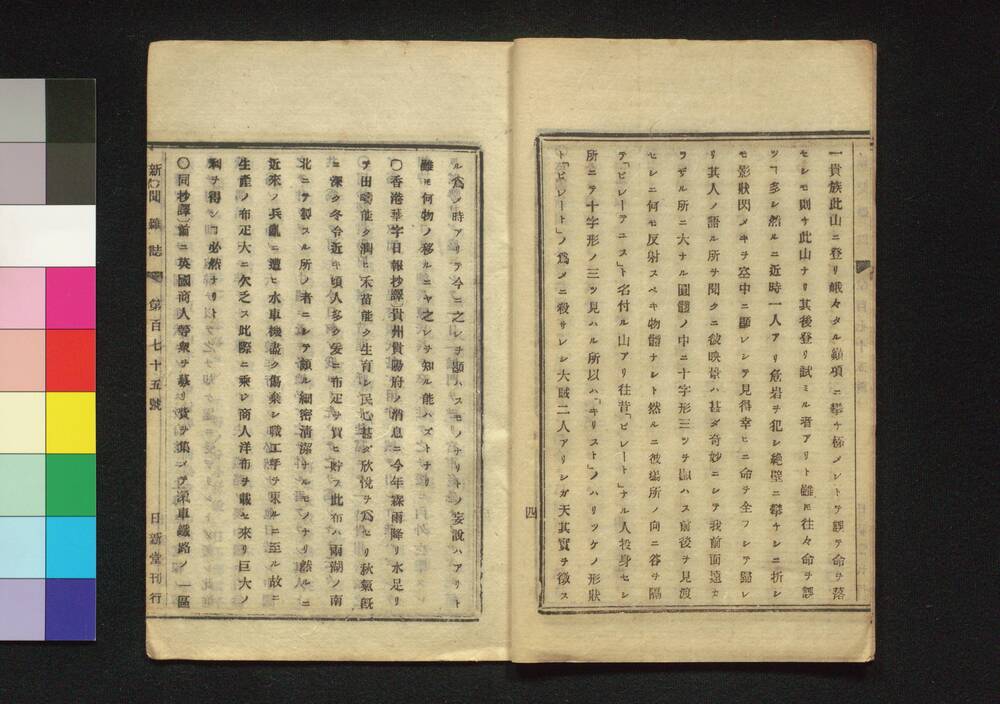 一貴族此山ニ登リ峨々タル巓頂ニ攀ヂ極メントヲ誤テ命ヲ落
セシモ則チ此山ナリ其後登リ試ミル者アリト雖𪜈往々命ヲ誤
ツヿ多シ然ルニ近時一人アリ危岩ヲ犯シ絶壁ニ攀ヂシニ折シ
モ影狀閃メキヲ空中ニ顯レシヲ見得幸ヒニ命ヲ全フシテ歸レ
リ其人ノ語ル所ヲ聞クニ彼映景ハ甚ダ奇妙ニシテ我前面遠カ
ラザル所ニ大ナル圓體ノ中ニ十字形三ツヲ顯ハス前後ヲ見渡
セシニ何モ反射スベキ物體ナシト然ルニ彼場所ノ向ニ谷ヲ隔
テ「ピレーテニス」ト名付ル山アリ往昔「ピレート」ナル人投身セシ
所ニテ十字形ノ三ツ見ハル所以ハ「キリスト」ノハリツケノ形狀
ト「ピレート」ノ爲メニ殺サレシ大賊二人アリシガ天其實ヲ徵ス
四
ル爲ノ時アリテ今ニ之レヲ顯ハスモノナリトノ妄說ハアリト
雖𪜈何物ノ移ルニヤ之レヲ知ル能ハズトナリ
〇香港華字日報抄譯〔貴州貴陽府ノ消息ニ今年霖雨降リ水足リ
テ田疇能ク潤ヒ禾苗能ク生育シ民心甚ダ欣悅ヲ爲セリ秋氣既
ニ深ク冬令近キ頃人多ク爰ニ布疋ヲ買ヒ貯フ此布ハ兩湖ノ南
北ニテ製スル所ノ者ニシテ頗ル細密淸潔ナルモノナリ然ルニ
近來ノ兵亂ニ遭ヒ水車機盡ク傷棄シ職工等ヲ東ルニ至ル故ニ
生產ノ布疋大ニ欠乏ス此際ニ乘シ商人洋布ヲ載セ來リ巨大ノ
利ヲ得ンヿ必然ナリト
〇同抄譯〔首ニ英國商人等衆ヲ募リ資ヲ集メテ滊車鐵路ノ一區
新聞雜誌 第百七十五號 日新堂刊行